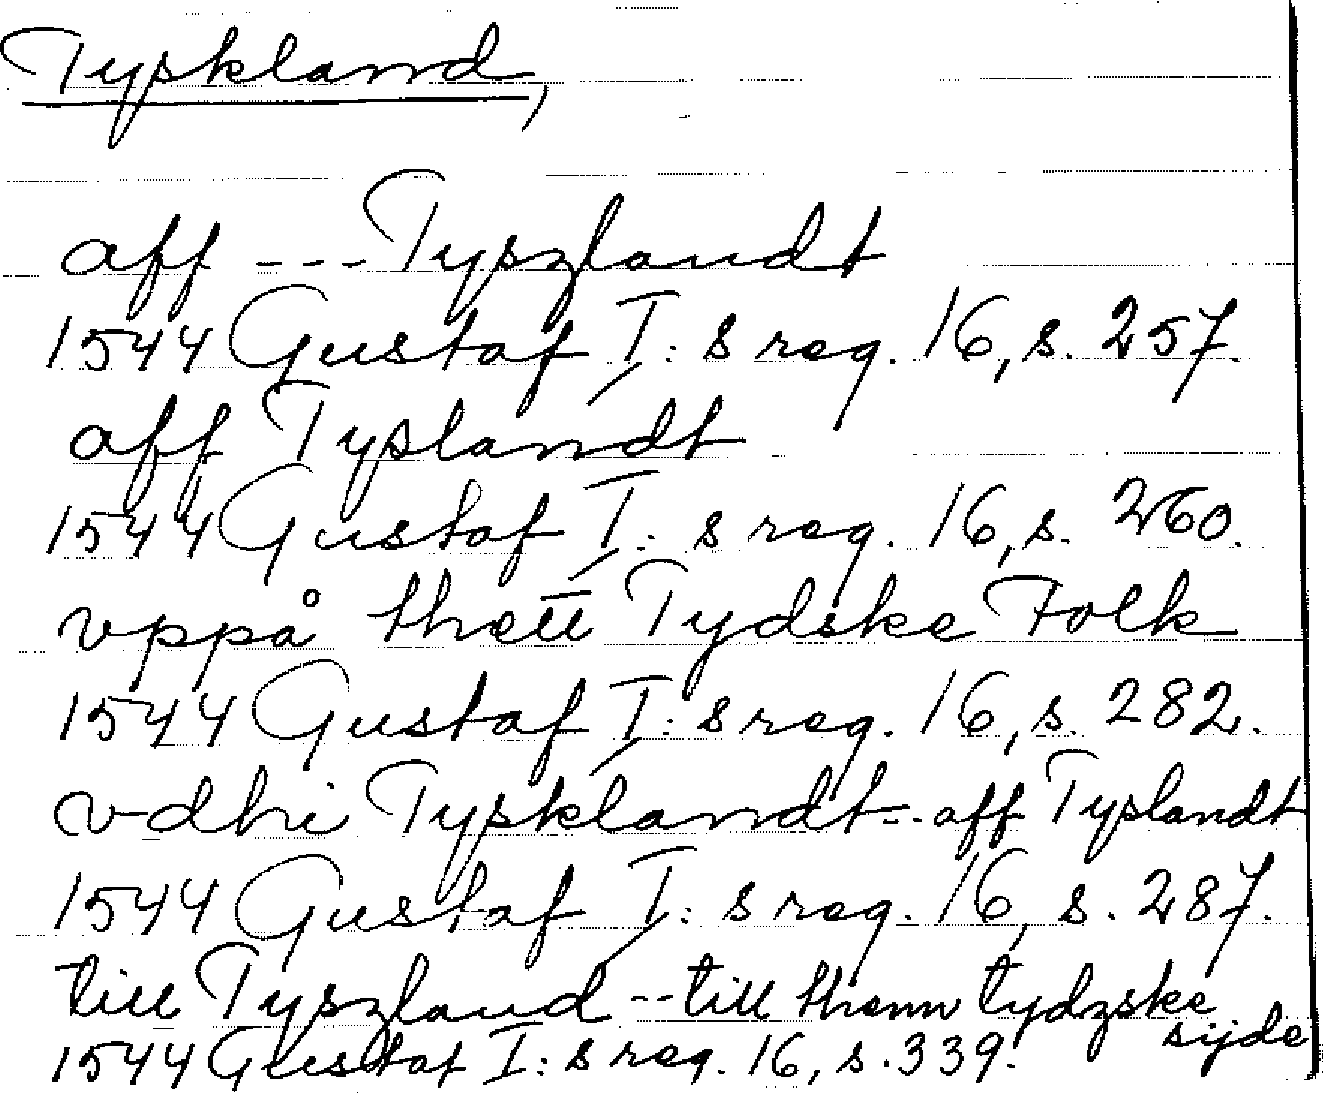 Tyskland,
aff --- Tyszlandt
1544 Gustaf I: s reg. 16, s. 257.
aff Tyslandt
1544 Gustaf I: s reg. 16, s. 260.
vppå thett Tydske Folk
1544 Gustaf I: s reg. 16, s. 282.
vdhi Tysklandt -- aff Tyslandt
1544 Gustaf I: s reg. 16, s. 287.
till Tyszland -- till thenn tydzske
sijde
1544 Gustaf I: s reg. 16, s. 339.